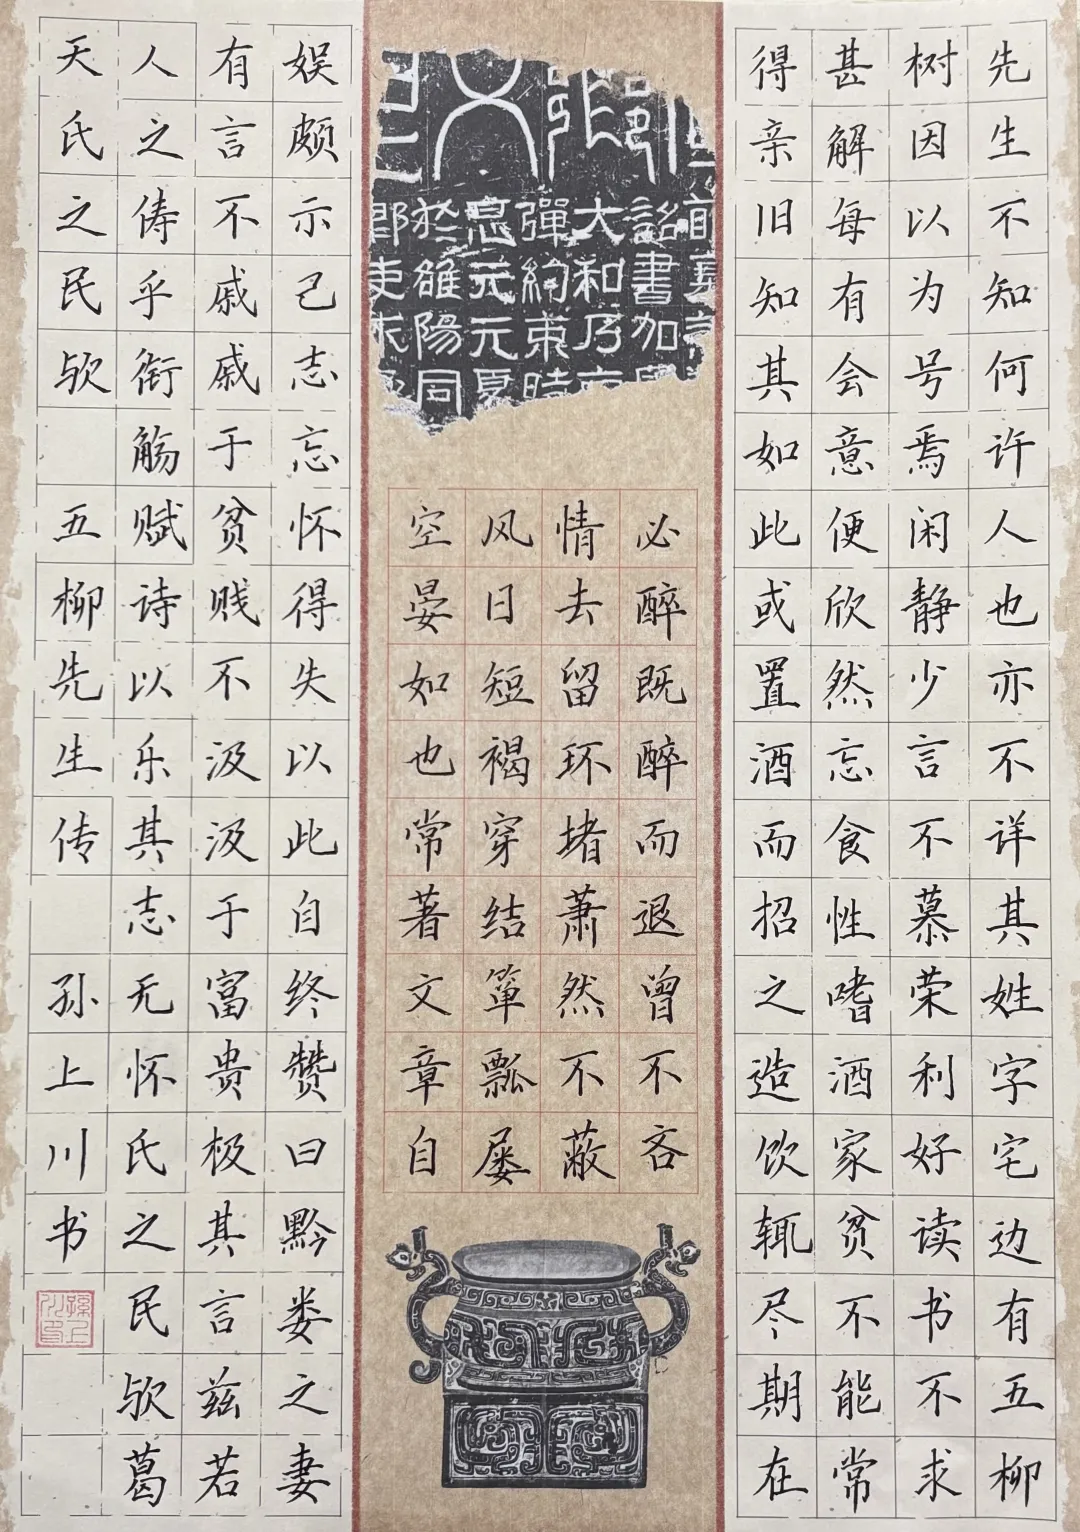 先生不知何许人也亦不详其姓字宅边有五柳
树因以为号焉闲静少言不慕荣利好读书不求
甚解每有会意便欣然忘食性嗜酒家贫不能常
得亲旧知其如此或置酒而招之造饮辄尽期在
詔書加
大和乃
彈約束時
恩元元夏
於雒陽同
必醉既醉而退曾不吝
情去留环堵萧然不蔽
风日短褐穿结箪瓢屡
空晏如也常著文章自
娱颇示己志忘怀得失以此自终赞曰黔娄之妻
有言不戚戚于贫贱不汲汲于富贵极其言兹若
人之俦乎衔觞赋诗以乐其志无怀氏之民欤葛
天氏之民欤 五柳先生传 孙上川书